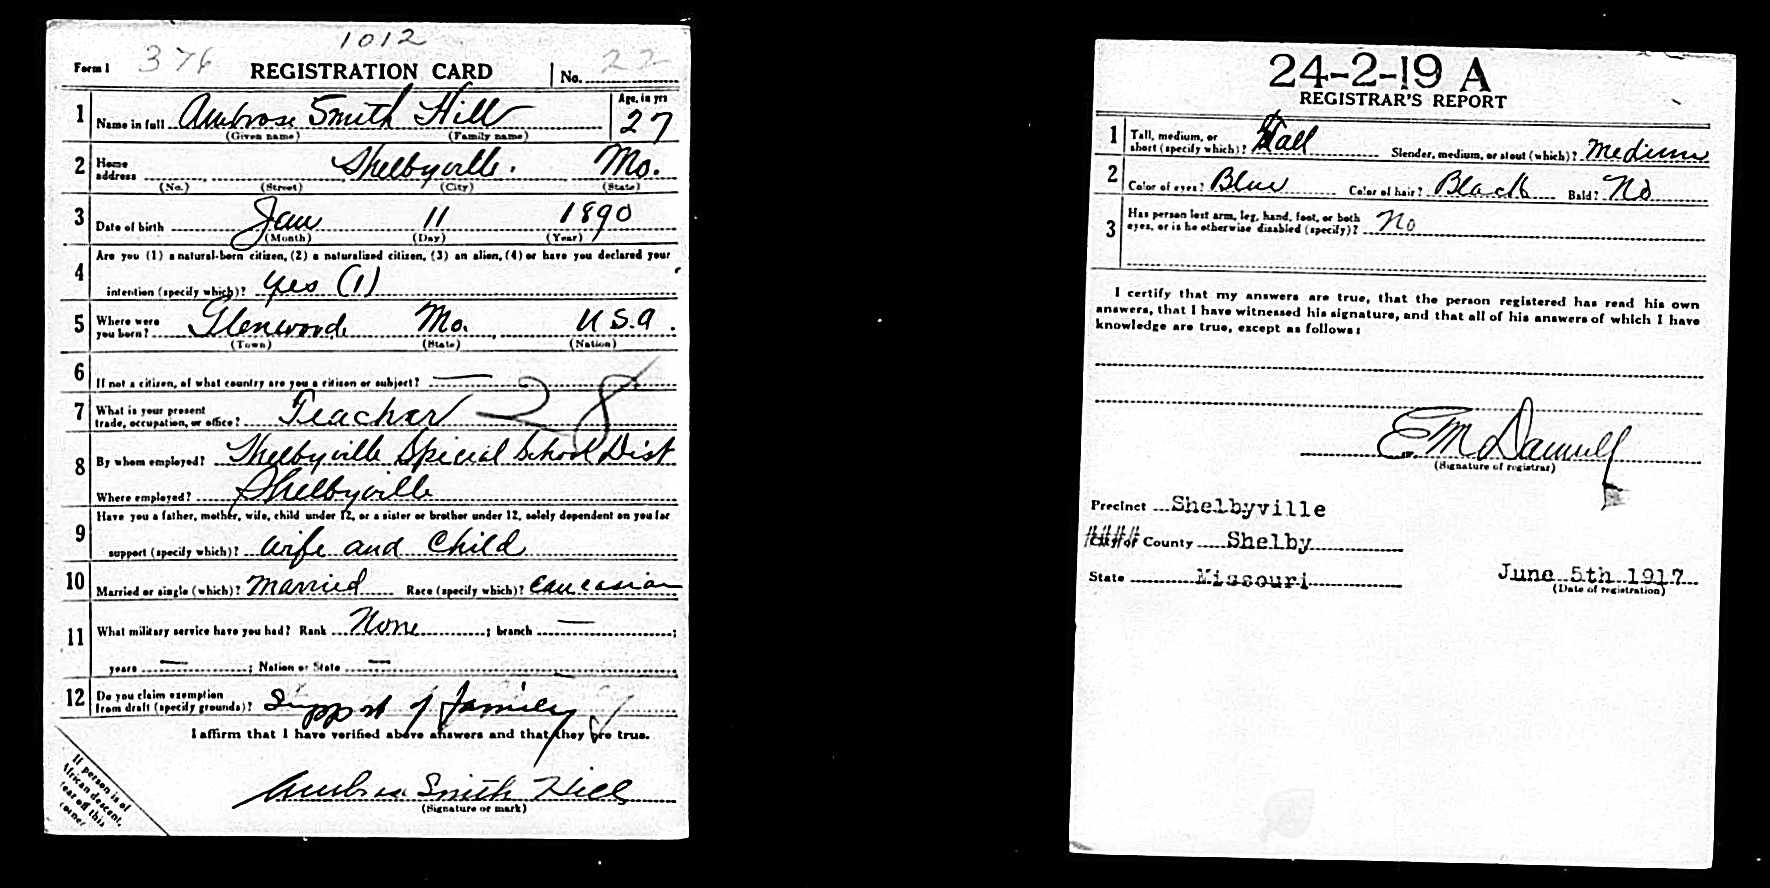 1012
Form 1 376 REGISTRATION CARD No. 22
1 Name in full Ambrose Smith Hill Age, in yrs 27
(Given name) (Family name)
2 Home address Shelbyville. Mo.
(No.) (Street) (City) (State)
3 Date of birth Jan 11 1890
(Month) (Day) (Year)
4 Are you (1) a natural-born citizen, (2) a naturalized citizen, (3) an alien, (4) or have you declared your
intention (specify which)? yes (1)
5 Where were you born? Glenwood Mo. U.S.A.
(Town) (State) (Nation)
6 If not a citizen, of what country are you a citizen or subject? —
7 What is your present trade, occupation, or office? Teacher 28
8 By whom employed? Shelbyville Special School Dist
Where employed? Shelbyville
9 Have you a father, mother, wife, child under 12, or a sister or brother under 12, solely dependent on you for
support (specify which)? Wife and Child
10 Married or single (which)? Married Race (specify which)? Caucasian
11 What military service have you had? Rank None ; branch — ;
years — ; Nation or State —
12 Do you claim exemption from draft (specify grounds)? Support of family
I affirm that I have verified above answers and that they are true.
Ambrose Smith Hill
(Signature or mark)
If person is of
African descent,
tear off this
corner
24-2-19 A
REGISTRAR'S REPORT
1 Tall, medium, or short (specify which)? Tall Slender, medium, or stout (which)? Medium
2 Color of eyes? Blue Color of hair? Black Bald? No
3 Has person lost arm, leg, hand, foot, or both eyes, or is he otherwise disabled (specify)? No
I certify that my answers are true, that the person registered has read his own
answers, that I have witnessed his signature, and that all of his answers of which I have
knowledge are true, except as follows:
(Signature of registrar)
Precinct Shelbyville
City or County Shelby
State Missouri June 5th 1917
(Date of registration)